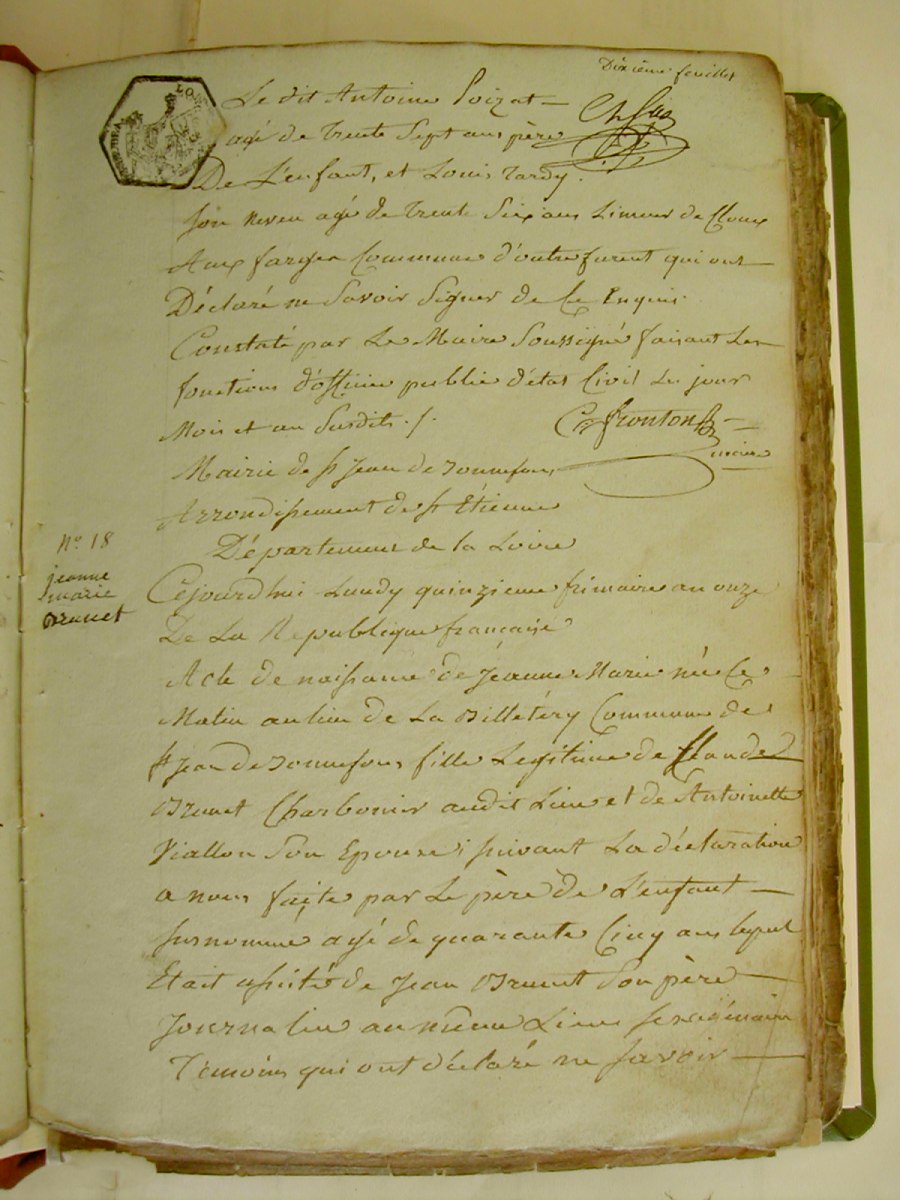 Dixième feuillet
Le dit Antoine Poizat
agé de trente Sept ans père
De L'enfant, et Louis Tardy.
Son Neveu agé de trente Six ans Limeur de Cloux
Aux farges Commune d'outrefurent qui ont
Déclaré ne Savoir Signer de Ce Enquis.
Constaté par Le Maire Soussigné faisant Les
fonctions d'officier public d'état Civil Les jour
Mois et an Susdits ./.
fronton
maire
Mairie de St Jean de Bonnefons
Arrondissement de St Etienne
Département de la Loire
No. 18
jeanne
marie
Brunet
Cejourdhui Lundy quinzieme frimaire an onze
De La Republique française
Acte de naissance de Jeanne Marie née Ce
Matin au lieu de La Billetéry Commune de
St Jean de Bonnefons fille Legitime de Claude
Brunet Charbonier audit Lieu et de Antoinette
Viallon Son Epouse, suivant La déclaration
a nous faite par Le père de L'enfant
surnommé agé de quarante Cinq ans lequel
Etait assisté de Jean Brunet Son père
Journalier au même Lieu
Témoins qui ont déclaré ne savoir